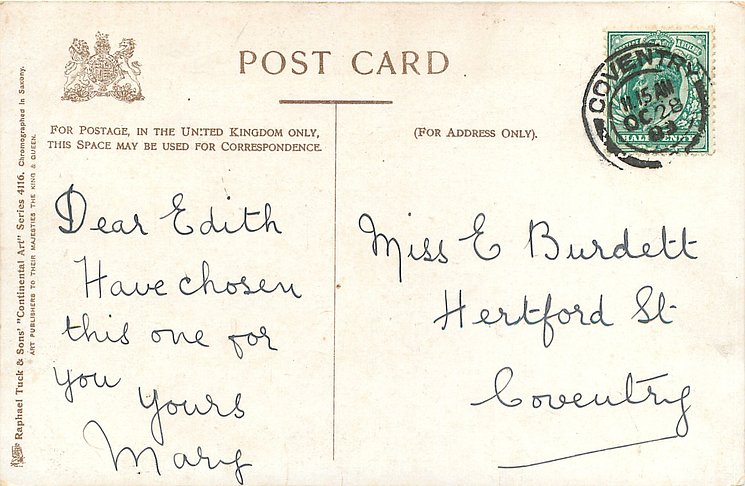 POST CARD
FOR POSTAGE, IN THE UNITED KINGDOM ONLY,
THIS SPACE MAY BE USED FOR CORRESPONDENCE.
(FOR ADDRESS ONLY).
COVENTRY
11.15 AM
OC 28
03
HALFPENNY
Dear Edith
Have chosen
this one for
you
Yours
Mary
Miss E Burdett
Hertford St
Coventry
Raphael Tuck & Sons' "Continental Art" Series 4116. Chromographed in Saxony.
ART PUBLISHERS TO THEIR MAJESTIES THE KING & QUEEN.